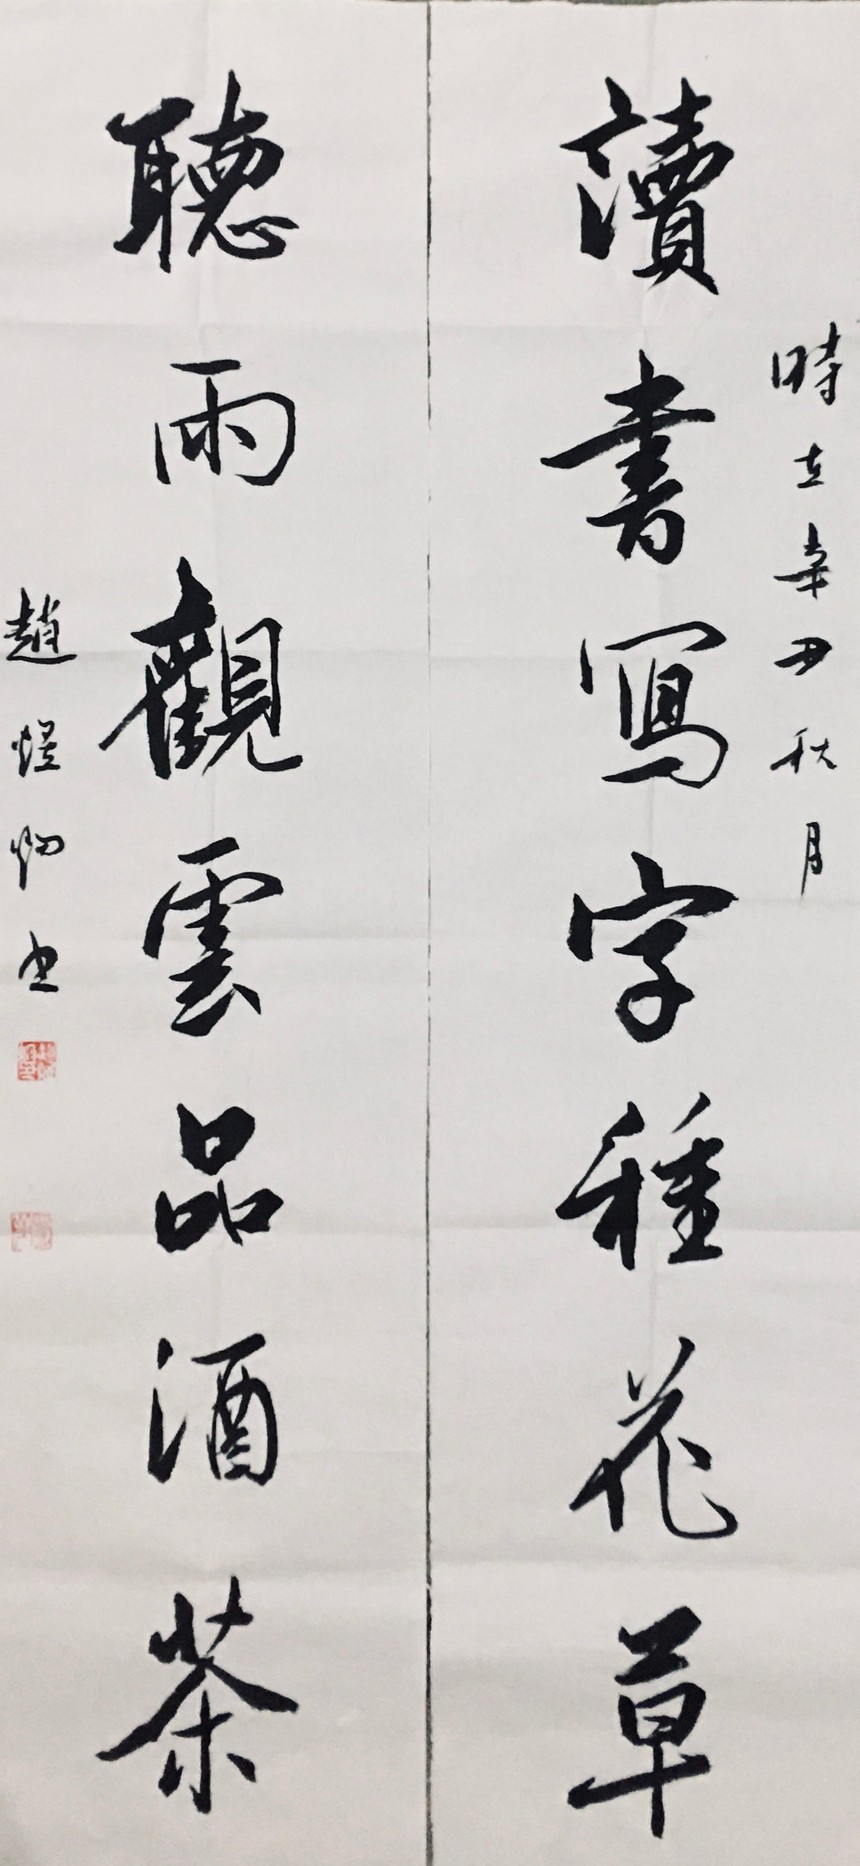 時在辛丑秋月
讀書寫字種花草
聽雨觀雲品酒茶
趙煜炯书